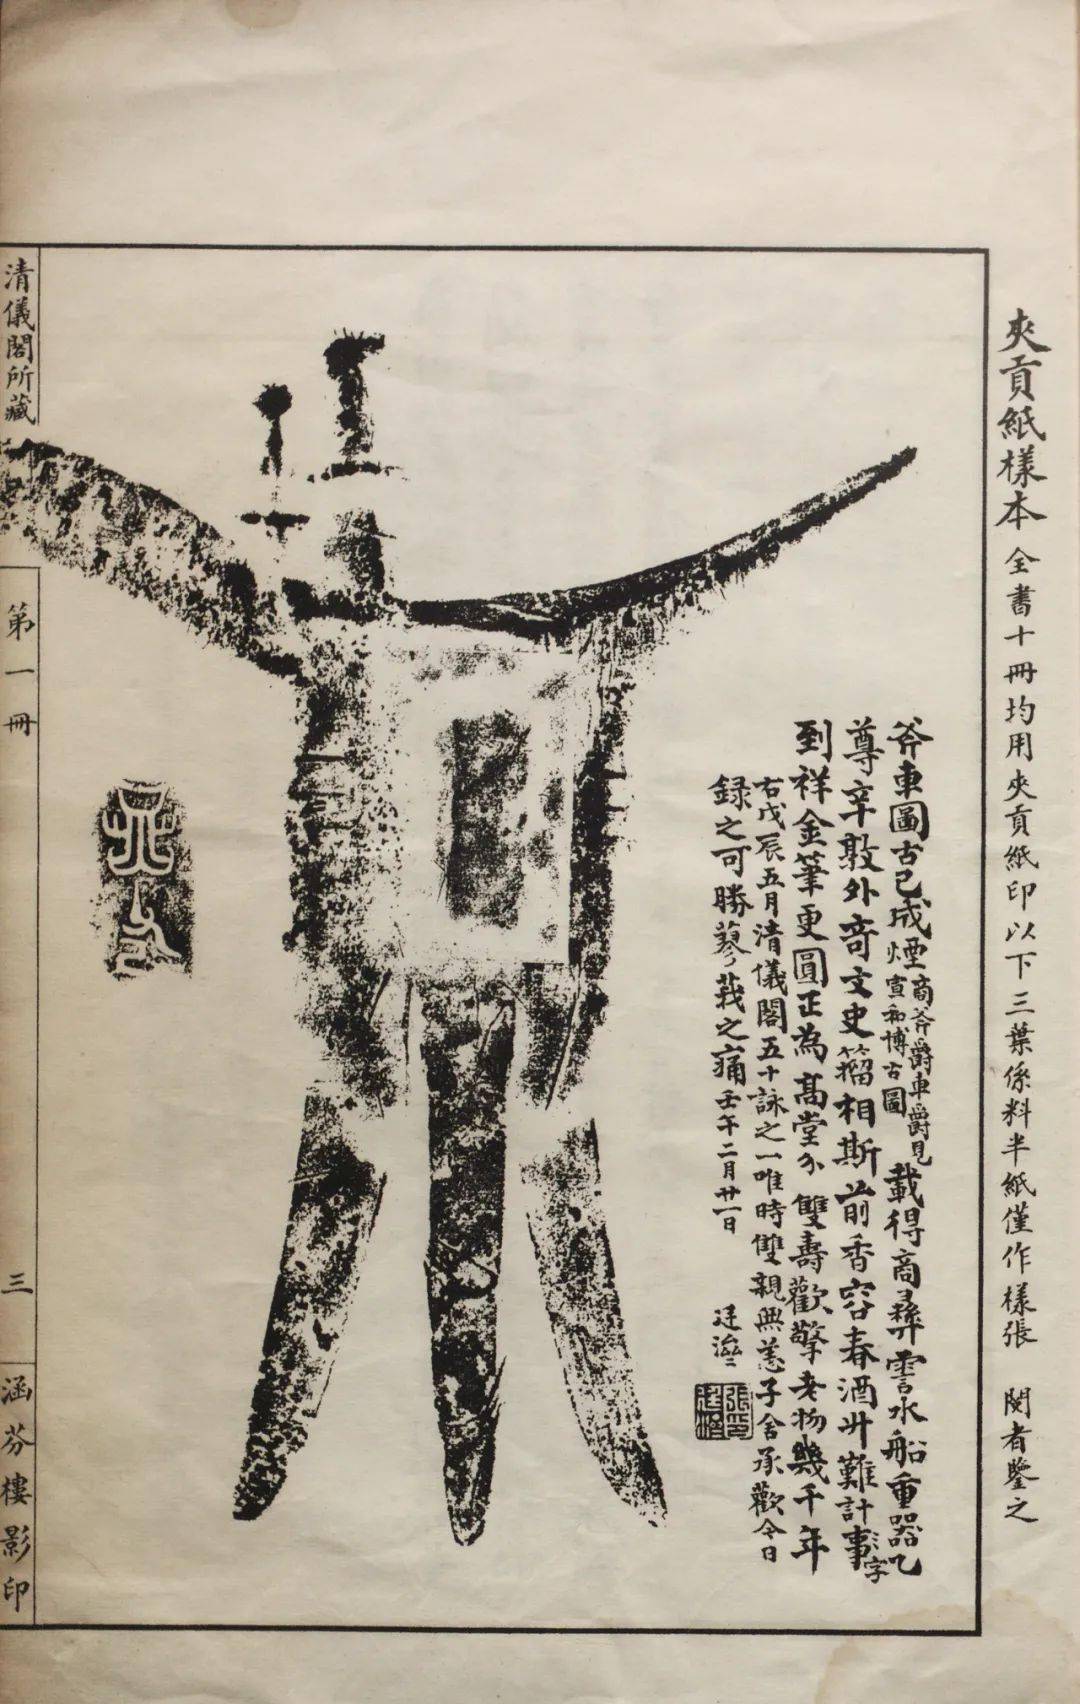 夾貢紙樣本 全書十冊均用夾貢紙印以下三葉係料半紙僅作樣張 閱者鑒之
斧車圖古已成煙 商斧爵車爵見宣和博古圖 載得商彝霅水船重器乙
尊辛敦外奇文史籀相斯前香容春酒卅難計事 字
到祥金筆更圓正為高堂介雙壽歡擎老物幾千年
右戊辰五月清儀閣五十詠之一唯時雙親興 子舍承歡今日
錄之可勝蓼莪之痛壬午二月廿一日 廷濟
張印廷濟
清儀閣所藏
第一冊
三
涵芬樓影印